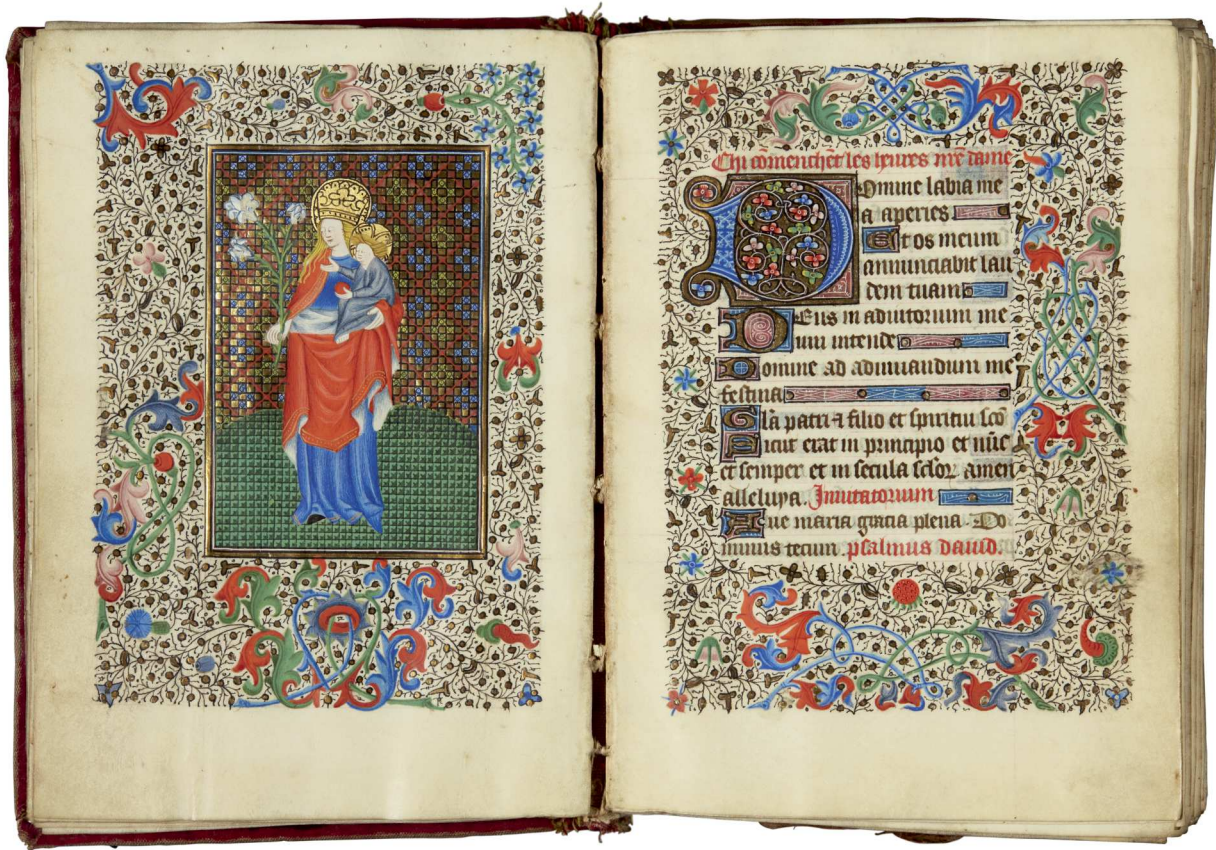 Chi cõmenchẽt les heures nr̃e dame
Domine labia me
a aperies
Et os meum
annunciabit lau
dem tuam
Deus in adiutorium me
um intende
Domine ad adiuuandum me
festina
Gl̃a patri ⁊ filio et spiritui sc̃o
Sicut erat in principio et nũc
et semper et in secula sclor̃ amen
alleluya. Inuitatorium
Aue maria gracia plena Do
minus tecum. psalmus dauid.